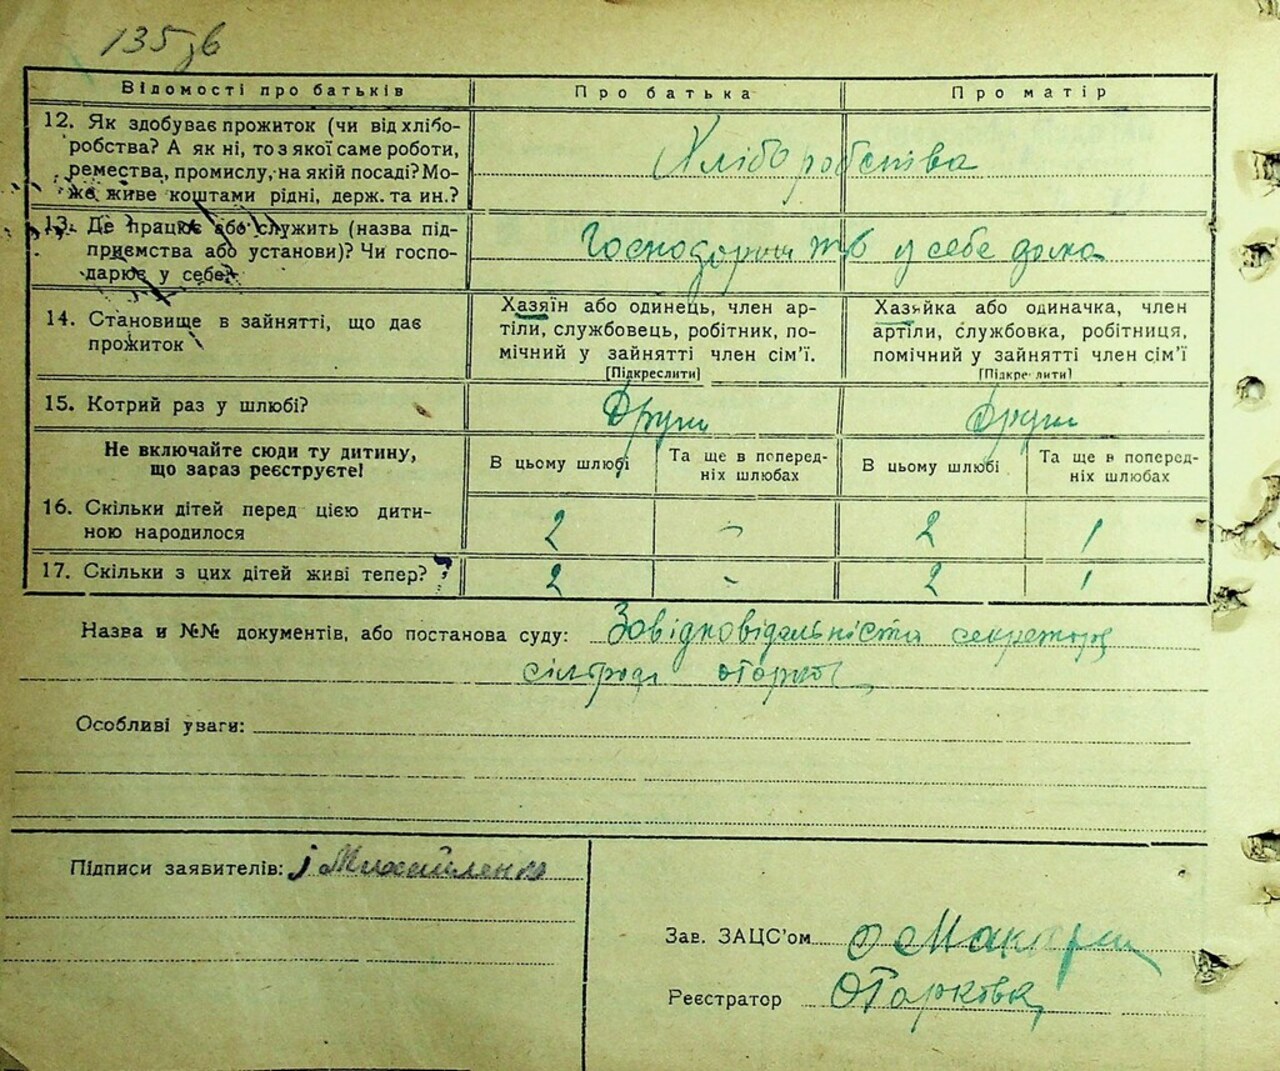 135 зв
Відомості про батьків
Про батька
Про матір
12. Як здобуває прожиток (чи від хлібо-
робства? А як ні, то з якої саме роботи,
ремества, промислу, на якій посаді? Мо-
же живе коштами рідні, держ. та ин.?
Хліборобства
13. Де працює або служить (назва під-
приємства або установи)? Чи госпо-
дарює у себе?
у себе дома
14. Становище в зайнятті, що дає
прожиток
Хазяїн або одинець, член ар-
тіли, службовець, робітник, по-
мічний у зайнятті член сім'ї.
[Підкреслити]
Хазяйка або одиначка, член
артіли, службовка, робітниця,
помічний у зайнятті член сім'ї
[Підкреслити]
15. Котрий раз у шлюбі?
Други
Други
Не включайте сюди ту дитину,
що зараз реєструєте!
В цьому шлюбі
Та ще в поперед-
ніх шлюбах
В цьому шлюбі
Та ще в поперед-
ніх шлюбах
16. Скільки дітей перед цією дити-
ною народилося
2
-
2
1
17. Скільки з цих дітей живі тепер?
2
-
2
1
Назва и №№ документів, або постанова суду: За відповідальністю секретаря
сільради
Особливі уваги:
Підписи заявителів: Михайленко
Зав. ЗАЦС'ом
Реєстратор